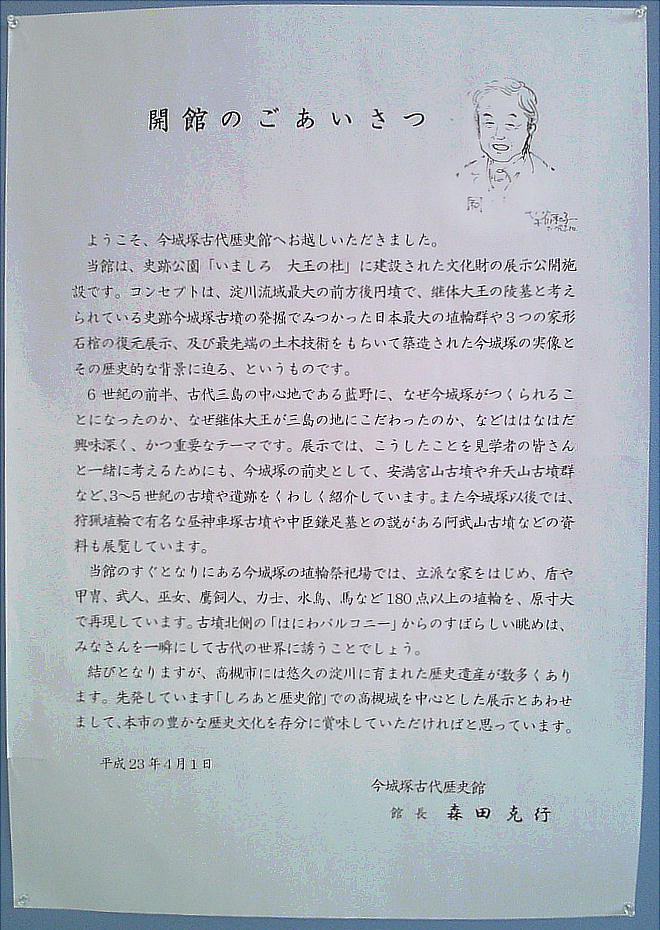 開館のごあいさつ
ようこそ、今城塚古代歴史館へお越しいただきました。
当館は、史跡公園「いましろ　大王の杜」に建設された文化財の展示公開施
設です。コンセプトは、淀川流域最大の前方後円墳で、継体大王の陵墓と考え
られている史跡今城塚古墳の発掘でみつかった日本最大の埴輪群や３つの家形
石棺の復元展示、及び最先端の土木技術をもちいて築造された今城塚の実像と
その歴史的な背景に迫る、というものです。
６世紀の前半、古代三島の中心地である藍野に、なぜ今城塚がつくられるこ
とになったのか、なぜ継体大王が三島の地にこだわったのか、などははなはだ
興味深く、かつ重要なテーマです。展示では、こうしたことを見学者の皆さん
と一緒に考えるためにも、今城塚の前史として、安満宮山古墳や弁天山古墳群
など、3～5世紀の古墳や遺跡をくわしく紹介しています。また今城塚以後では、
狩猟埴輪で有名な昼神車塚古墳や中臣鎌足墓との説がある阿武山古墳などの資
料も展覧しています。
当館のすぐとなりにある今城塚の埴輪祭祀場では、立派な家をはじめ、盾や
甲冑、武人、巫女、鷹飼人、力士、水鳥、馬など180点以上の埴輪を、原寸大
で再現しています。古墳北側の「はにわバルコニー」からのすばらしい眺めは、
みなさんを一瞬にして古代の世界に誘うことでしょう。
結びとなりますが、高槻市には悠久の淀川に育まれた歴史遺産が数多くあり
ます。先発しています「しろあと歴史館」での高槻城を中心とした展示とあわせ
まして、本市の豊かな歴史文化を存分に賞味していただければと思っています。
平成23年4月1日
今城塚古代歴史館
館長　森田克行